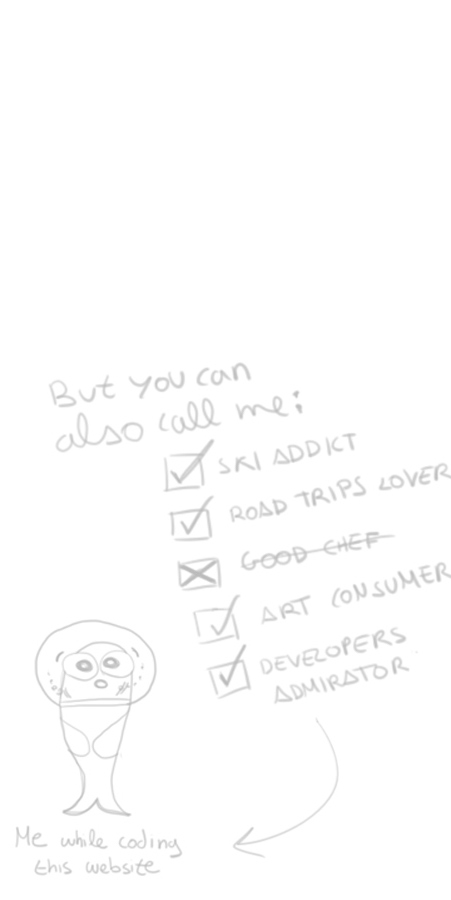 But you can
also call me:
SKI ADDICT
ROAD TRIPS LOVER
GOOD CHEF
ART CONSUMER
DEVELOPERS
ADMIRATOR
Me while coding
this website